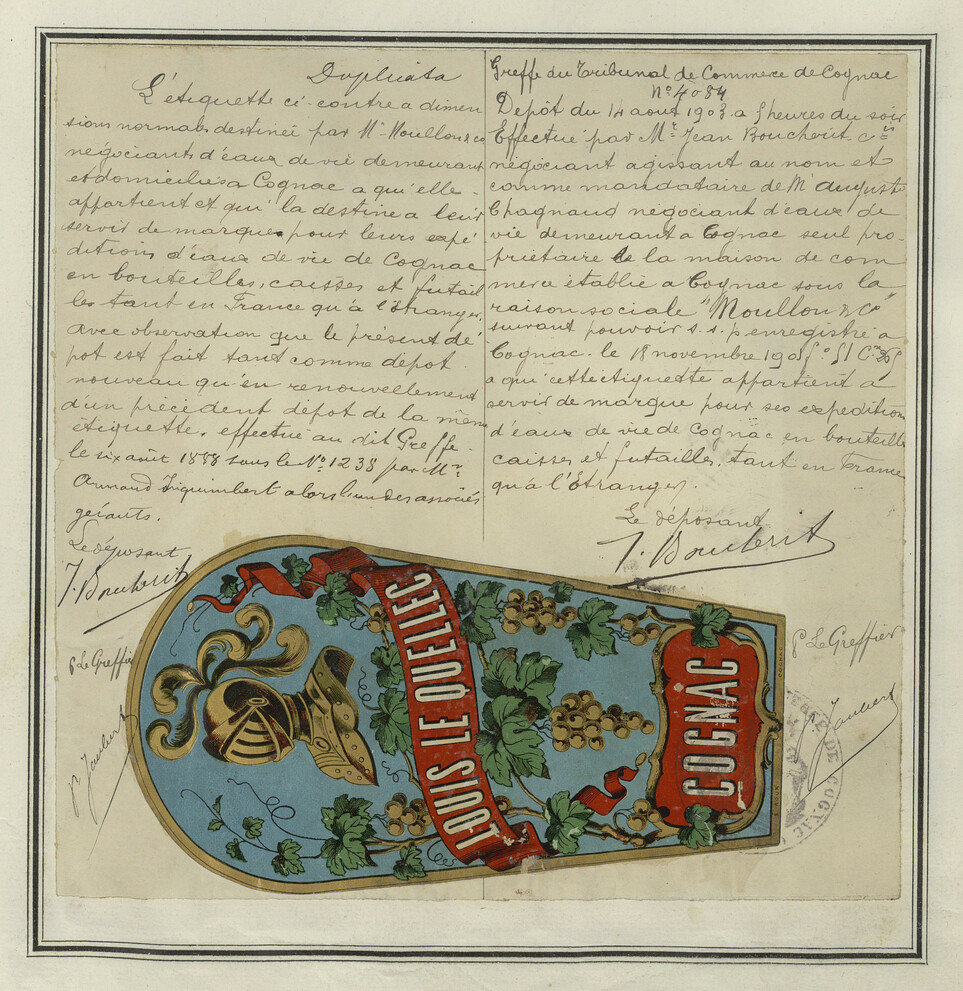 Duplicata
L'étiquette ci-contre a dimen
sions normales destinée par Mr Moullon & Co
négociants d'eaux de vie demeurant
et domiciliés a Cognac a qui elle
appartient et qui la destine a leur
servir de marques pour leurs expé
ditions d'eaux de vie de Cognac
en bouteilles, caisses et futail
les tant en France qu'à l'étranger,
avec observation que le présent dé
pot est fait tant comme dépot
nouveau qu'en renouvellement
d'un précédent dépot de la même
étiquette, effectué au dit Greffe
le six août 1888 sous le No 1238 par Mr
Armand alors l'un des associés
gérants.
Le déposant
J. Boucherit
p Le Greffier
Jaubert
Greffe du Tribunal de Commerce de Cognac
No 4084
Depôt du 14 aout 1903 a 5 heures du soir
Effectué par Mr Jean Boucherit
négociant agissant au nom et
comme mandataire de Mr Auguste
Chagnaud négociant d'eaux de
vie demeurant a Cognac seul pro-
priétaire de la maison de com
merce établie a Cognac sous la
raison sociale "Moullon & Co"
suivant pouvoir s.s.p. enregistré a
Cognac le 18 novembre
a qui cette étiquette appartient a
servir de marque pour ses expeditions
d'eaux de vie de Cognac en bouteilles
caisses et futailles, tant en France
qu'à l'Etranger.
Le déposant
J. Boucherit
p Le Greffier
Jaubert
LOUIS LE QUELLEC
COGNAC
DE COGNAC